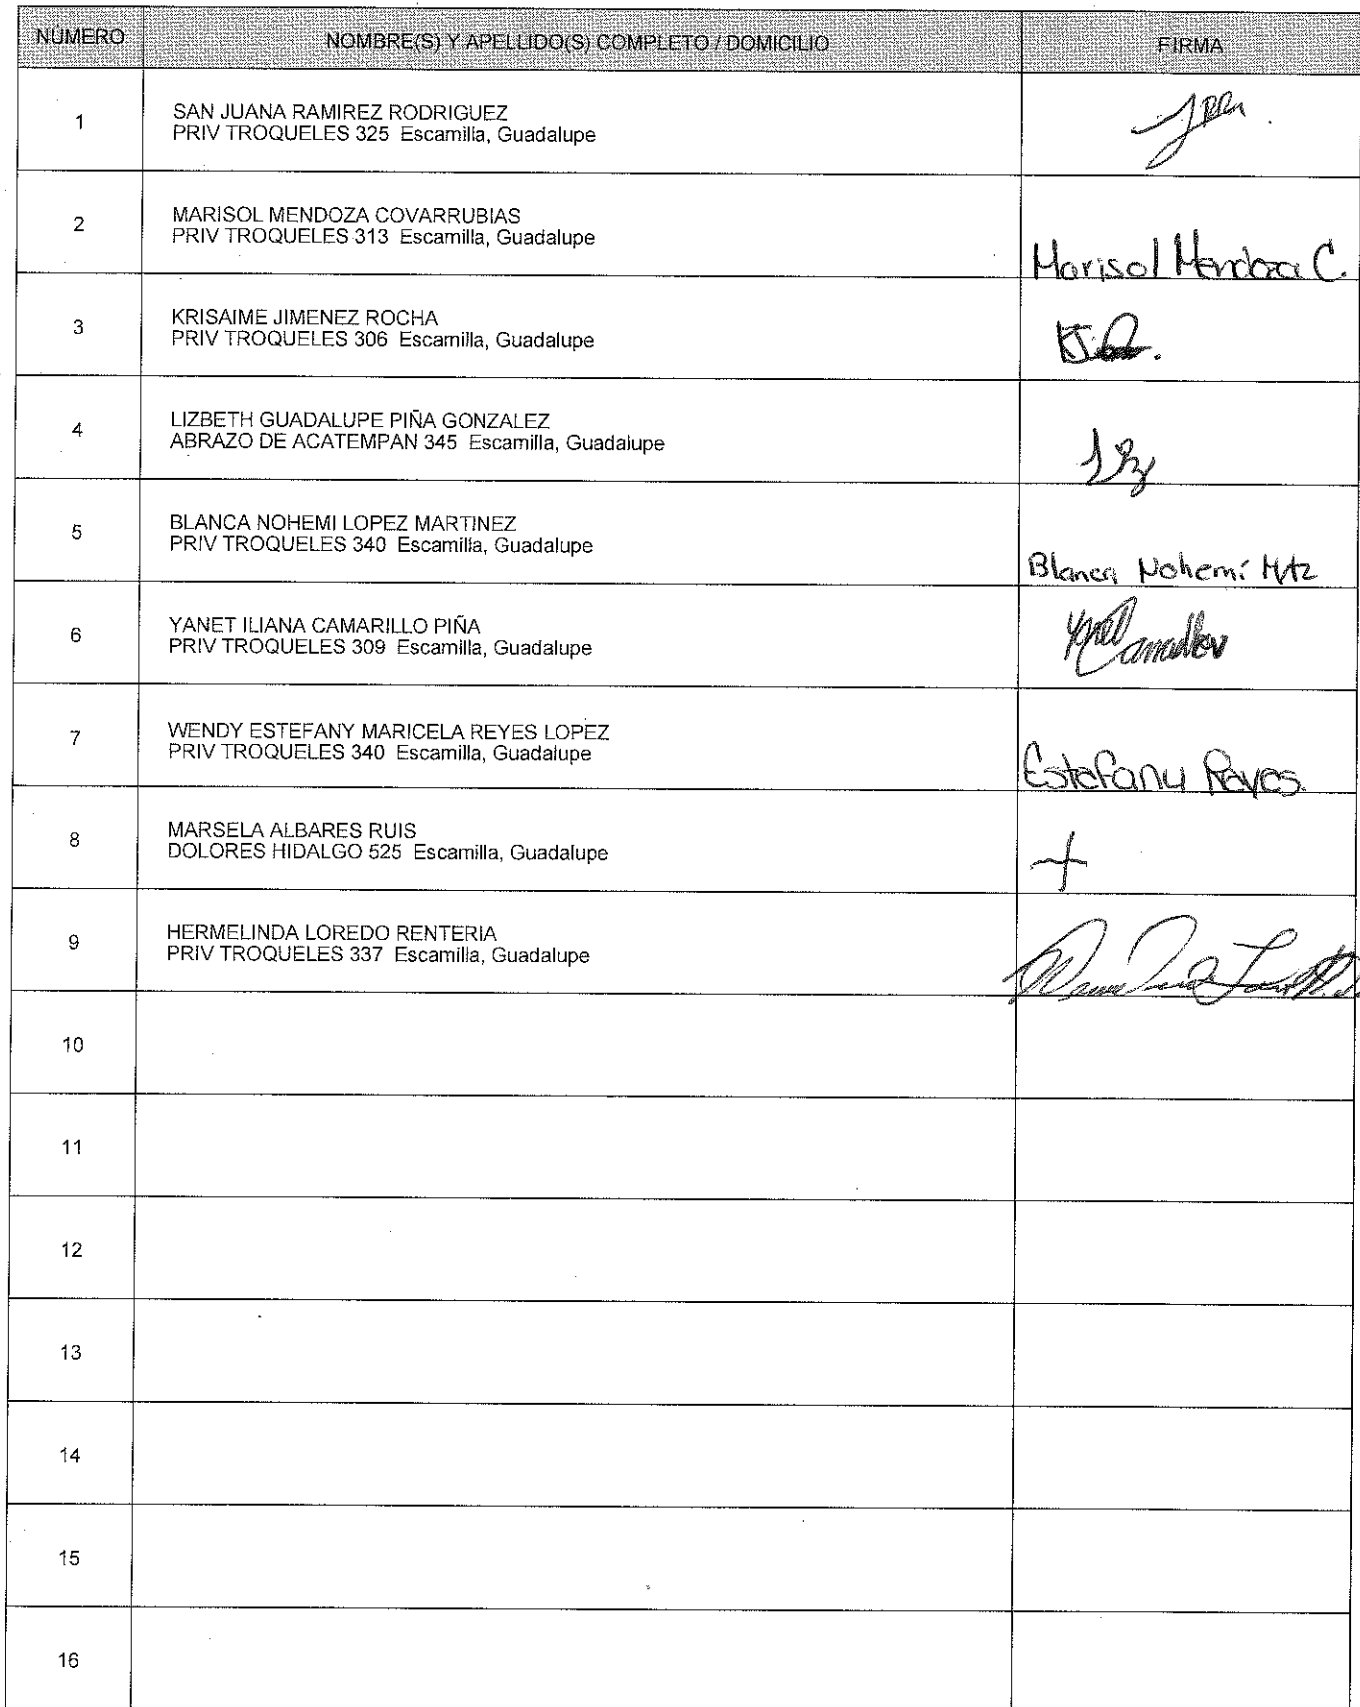 NÚMERO NOMBRE(S) Y APELLIDO(S) COMPLETO / DOMICILIO FIRMA
1 SAN JUANA RAMIREZ RODRIGUEZ
PRIV TROQUELES 325 Escamilla, Guadalupe
2 MARISOL MENDOZA COVARRUBIAS
PRIV TROQUELES 313 Escamilla, Guadalupe
Marisol Mendoza C.
3 KRISAIME JIMENEZ ROCHA
PRIV TROQUELES 306 Escamilla, Guadalupe
4 LIZBETH GUADALUPE PIÑA GONZALEZ
ABRAZO DE ACATEMPAN 345 Escamilla, Guadalupe
5 BLANCA NOHEMI LOPEZ MARTINEZ
PRIV TROQUELES 340 Escamilla, Guadalupe
Blanca Nohemí Mtz
6 YANET ILIANA CAMARILLO PIÑA
PRIV TROQUELES 309 Escamilla, Guadalupe
7 WENDY ESTEFANY MARICELA REYES LOPEZ
PRIV TROQUELES 340 Escamilla, Guadalupe
Estefany Reyes.
8 MARSELA ALBARES RUIS
DOLORES HIDALGO 525 Escamilla, Guadalupe
9 HERMELINDA LOREDO RENTERIA
PRIV TROQUELES 337 Escamilla, Guadalupe
10
11
12
13
14
15
16